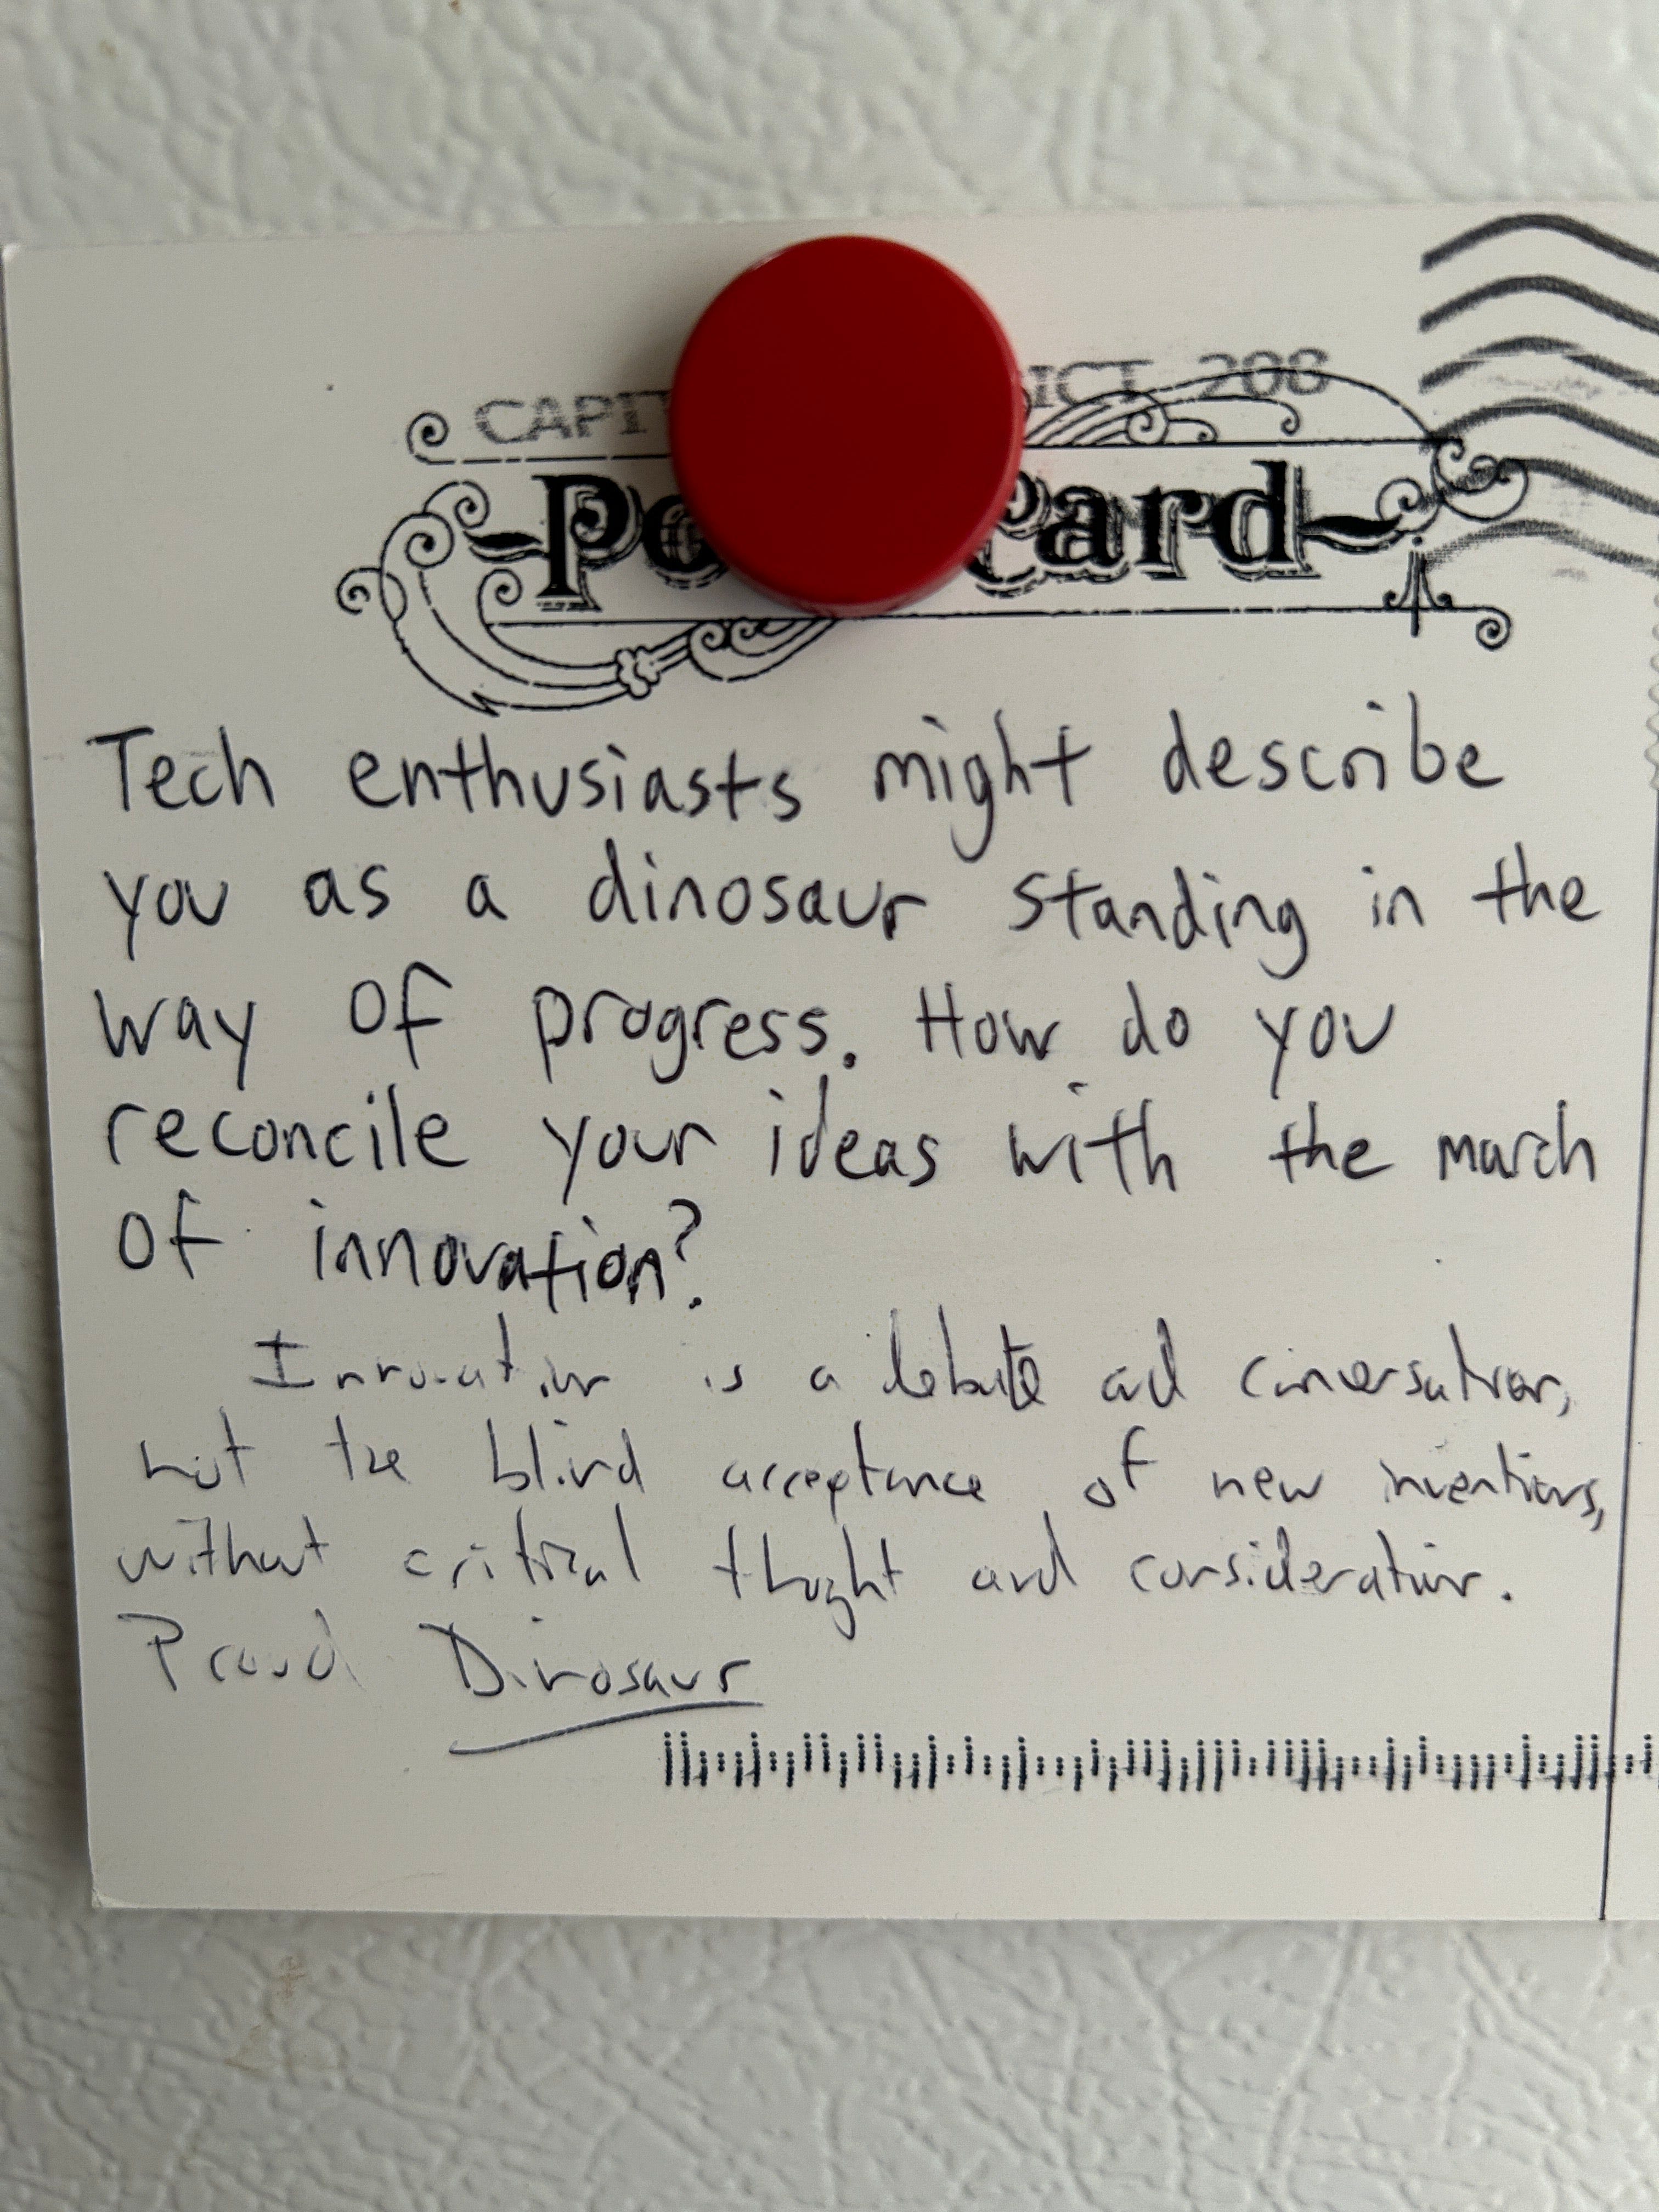 CAPIT ICT 208
Po card
Tech enthusiasts might describe
you as a dinosaur standing in the
way of progress. How do you
reconcile your ideas with the march
of innovation?
Innovation is a debate and conversation,
not the blind acceptance of new inventions,
without critical thought and consideration.
Proud Dinosaur